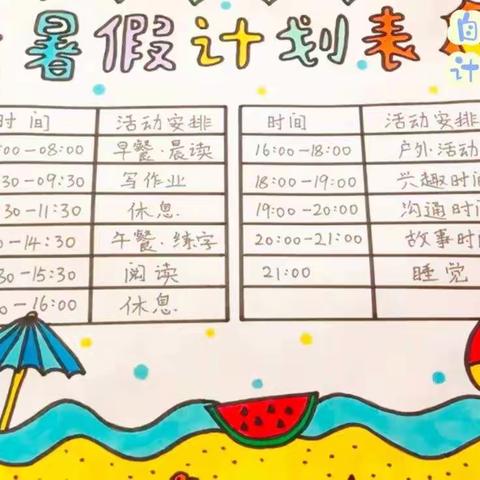 暑假计划表
自
计
时间 活动安排
00-08:00 早餐·晨读
30-09:30 写作业
30-11:30 休息
0-14:30 午餐·练字
30-15:30 阅读
0-16:00 休息
时间 活动安排
16:00-18:00 户外活动
18:00-19:00 兴趣时间
19:00-20:00 沟通时间
20:00-21:00 故事时间
21:00 睡觉